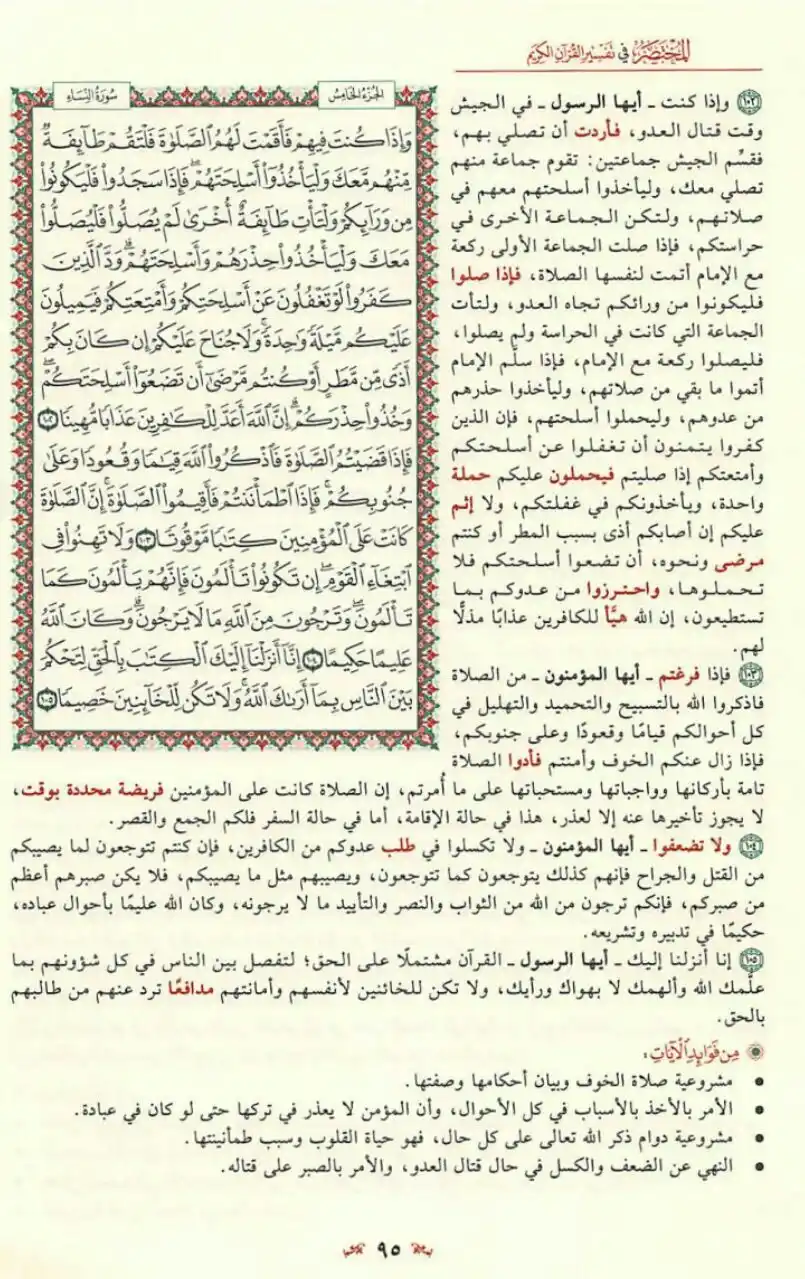 المختصر في تفسير القرآن الكريم
سورة النساء
الجزء الخامس
وإذا كنت فيهم فأقمت لهم الصلوة فلتقم طايفة
منهم معك وليأخذوا أسلحتهم فإذا سجدوا فليكونوا
من ورايكم ولتأت طايفة أخرى لم يصلوا فليصلوا
معك وليأخذوا حذرهم وأسلحتهم ود الذين
كفروا لو تغفلون عن أسلحتكم وأمتعتكم فيميلون
عليكم ميلة واحدة ولا جناح عليكم إن كان بكم
أذى من مطر أو كنتم مرضى أن تضعوا أسلحتكم
وخذوا حذركم إن الله أعد للكافرين عذابا مهينا ١٠٢
فإذا قضيتم الصلوة فاذكروا الله قياما وقعودا وعلى
جنوبكم فإذا اطمأننتم فأقيموا الصلوة إن الصلوة
كانت على المؤمنين كتابا موقوتا ١٠٣ ولا تهنوا في
ابتغاء القوم إن تكونوا تألمون فإنهم يألمون كما
تألمون وترجون من الله ما لا يرجون وكان الله
عليما حكيما ١٠٤ إنا أنزلنا إليك الكتب بالحق لتحكم
بين الناس بما أرىك الله ولا تكن للخاينين خصيما ١٠٥
١٠٢ وإذا كنت ـ أيها الرسول ـ في الجيش
وقت قتال العدو، فأردت أن تصلي بهم،
فقسِّم الجيش جماعتين: تقوم جماعة منهم
تصلي معك، وليأخذوا أسلحتهم معهم في
صلاتهم، ولتكن الجماعة الأخرى في
حراستكم، فإذا صلت الجماعة الأولى ركعة
مع الإمام أتمت لنفسها الصلاة، فإذا صلوا
فليكونوا من ورائكم تجاه العدو، ولتأت
الجماعة التي كانت في الحراسة ولم يصلوا،
فليصلوا ركعة مع الإمام، فإذا سلَّم الإمام
أتموا ما بقي من صلاتهم، وليأخذوا حذرهم
من عدوهم، وليحملوا أسلحتهم، فإن الذين
كفروا يتمنون أن تغفلوا عن أسلحتكم
وأمتعتكم إذا صليتم فيحملون عليكم حملة
واحدة، ويأخذونكم في غفلتكم، ولا إثم
عليكم إن أصابكم أذى بسبب المطر أو كنتم
مرضى ونحوه، أن تضعوا أسلحتكم فلا
تحملوها، واحترزوا من عدوكم بما
تستطيعون، إن الله هيَّأ للكافرين عذابًا مذلًّا
لهم.
١٠٣ فإذا فرغتم ـ أيها المؤمنون ـ من الصلاة
فاذكروا الله بالتسبيح والتحميد والتهليل في
كل أحوالكم قيامًا وقعودًا وعلى جنوبكم،
فإذا زال عنكم الخوف وأمنتم فأدوا الصلاة
تامة بأركانها وواجباتها ومستحباتها على ما أُمرتم، إن الصلاة كانت على المؤمنين فريضة محددة بوقت،
لا يجوز تأخيرها عنه إلا لعذر، هذا في حالة الإقامة، أما في حالة السفر فلكم الجمع والقصر.
١٠٤ ولا تضعفوا ـ أيها المؤمنون ـ ولا تكسلوا في طلب عدوكم من الكافرين، فإن كنتم تتوجعون لما يصيبكم
من القتل والجراح فإنهم كذلك يتوجعون كما تتوجعون، ويصيبهم مثل ما يصيبكم، فلا يكن صبرهم أعظم
من صبركم، فإنكم ترجون من الله من الثواب والنصر والتأييد ما لا يرجونه، وكان الله عليمًا بأحوال عباده،
حكيمًا في تدبيره وتشريعه.
١٠٥ إنا أنزلنا إليك ـ أيها الرسول ـ القرآن مشتملًا على الحق؛ لتفصل بين الناس في كل شؤونهم بما
علَّمك الله وألهمك لا بهواك ورأيك، ولا تكن للخائنين لأنفسهم وأمانتهم مدافعًا ترد عنهم من طالبهم
بالحق.
من فوائد الآيات:
• مشروعية صلاة الخوف وبيان أحكامها وصفتها.
• الأمر بالأخذ بالأسباب في كل الأحوال، وأن المؤمن لا يعذر في تركها حتى لو كان في عبادة.
• مشروعية دوام ذكر الله تعالى على كل حال، فهو حياة القلوب وسبب طمأنينتها.
• النهي عن الضعف والكسل في حال قتال العدو، والأمر بالصبر على قتاله.
٩٥